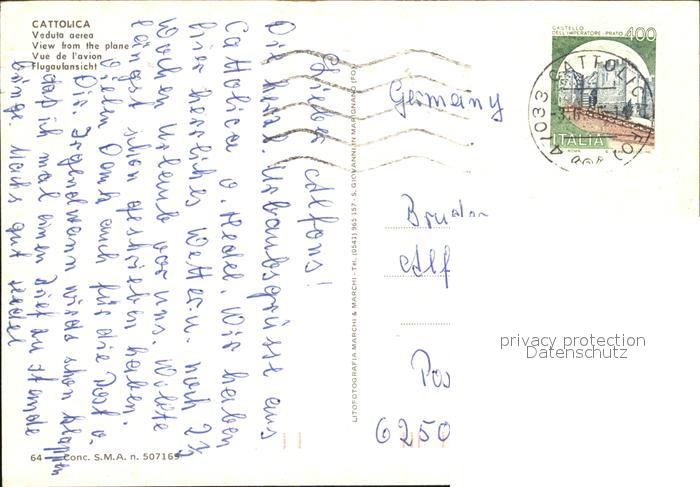 CATTOLICA
Veduta aerea
View from the plane
Vue de l'avion
Flugaufansicht
Lieber Alfons!
Die herzl. Urlaubsgrüsse aus
Cattolica v. Hedel. Wir haben
hier herrliches Wetter u. noch 2½
Wochen Urlaub vor uns. Wollte
längst schon geschrieben haben.
Vielen Dank auch für die Post v.
Dir. Irgendwann wirds schon klappen
daß ich mal einen Brief zu Stande
bringe. Machs gut Hedel
64 Conc. S.M.A. n. 507169
LITOFOTOGRAFIA MARCHI & MARCHI - Tel. (0541) 965 157 - S. GIOVANNI IN MARIGNANO (FO)
CASTELLO
DELL'IMPERATORE - PRATO 400
ITALIA
ROMA
41033 CATTOLICA (FO)
Germany
Bruder
Alf
Pos
6250
privacy protection
Datenschutz